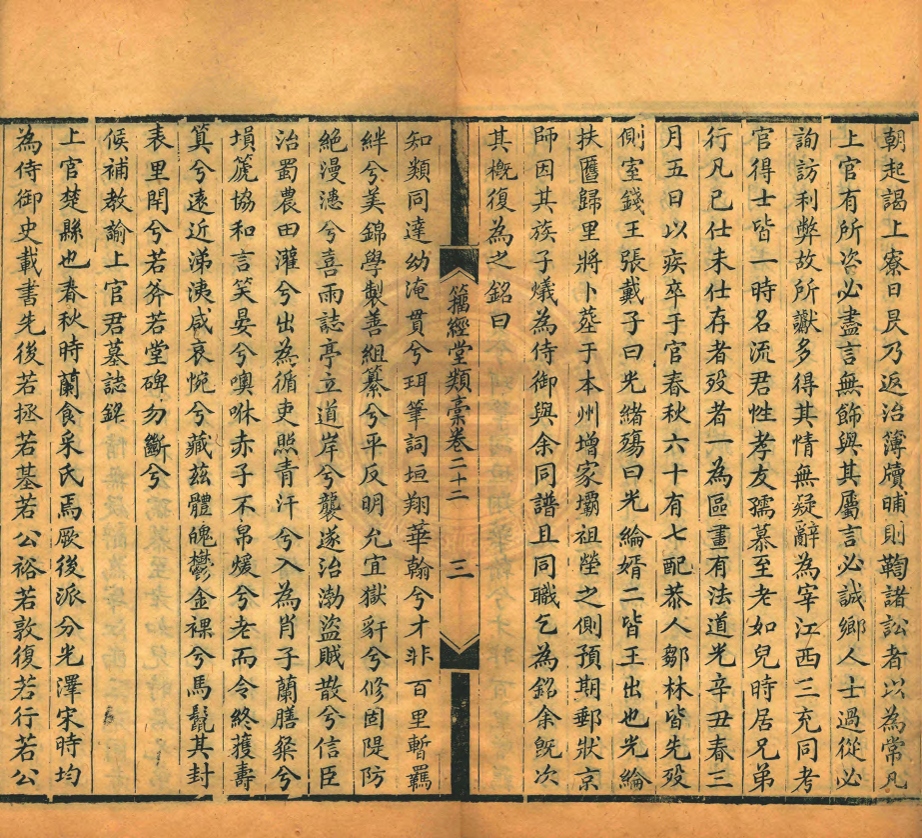 朝起謁上寮日昃乃返治簿牘晡則鞫諸訟者以為常凡
上官有所次必盡言無飾與其屬言必誠鄉人士過從必
詢訪利弊故所讞多得其情無疑辭為宰江西三充同考
官得士皆一時名流君性孝友孺慕至老如兒時居兄弟
行凡已仕未仕存者歿者一為區畫有法道光辛丑春三
月五日以疾卒于官春秋六十有七配恭人鄒林皆先歿
側室錢王張戴子曰光緒殤曰光綸婿二皆王出也光綸
扶匶歸里將卜塟于本州增家壩祖塋之側預期郵狀京
師因其族子爔為侍御與余同譜且同職乞為銘余旣次
其槪復為之銘曰
籀經堂類稾卷二十三
三
知類同達幼淹貫兮珥筆詞垣翔華翰兮才非百里暫羈
絆兮美錦學製善組纂兮平反明允宜獄豻兮修固隄防
絕漫漶兮喜雨誌亭立道岸兮龔遂治渤盜賊散兮信臣
治蜀農田灌兮出為循吏照青汗兮入為肖子蘭膳粲兮
塤箎協和言笑晏兮噢咻赤子不帛煖兮老而令終獲壽
算兮遠近涕洟咸哀惋兮藏茲體魄鬱金祼兮馬鬣其封
表里閈兮若斧若堂碑勿斷兮
候補教諭上官君墓誌銘
上官楚縣也春秋時蘭食采氏焉厥後派分光澤宋時均
為侍御史載書先後若拯若基若公裕若敦復若行若公